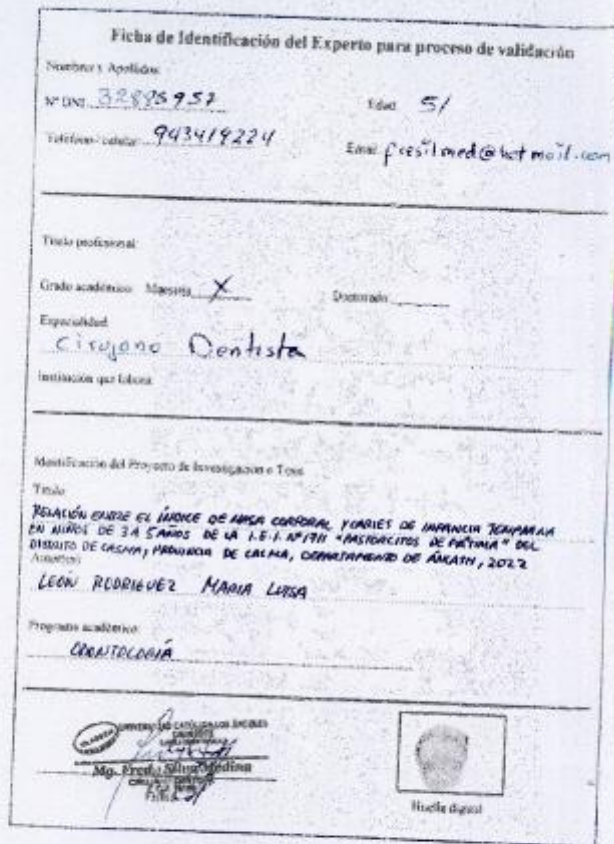 Ficha de Identificación del Experto para proceso de validación
Nombres y Apellidos:
N° DNI 32895957 Edad 51
Teléfono / celular: 943419224 Email: fresilmed@hotmail.com
Título profesional:
Grado académico: Maestría X Doctorado
Especialidad:
Cirujano Dentista
Institución que labora:
Identificación del Proyecto de Investigación o Tesis
Título:
RELACIÓN ENTRE EL ÍNDICE DE MASA CORPORAL Y CARIES DE INFANCIA TEMPRANA
EN NIÑOS DE 3 A 5 AÑOS DE LA I.E.I. N° 1711 "PASTORCITOS DE FÁTIMA" DEL
DISTRITO DE CASMA, PROVINCIA DE CASMA, DEPARTAMENTO DE ÁNCASH, 2022
LEON RODRIGUEZ MARIA LUISA
Programa académico:
ODONTOLOGÍA
UNIVERSIDAD CATÓLICA LOS ÁNGELES
CHIMBOTE
Mg. Fredy Silva Medina
Huella digital